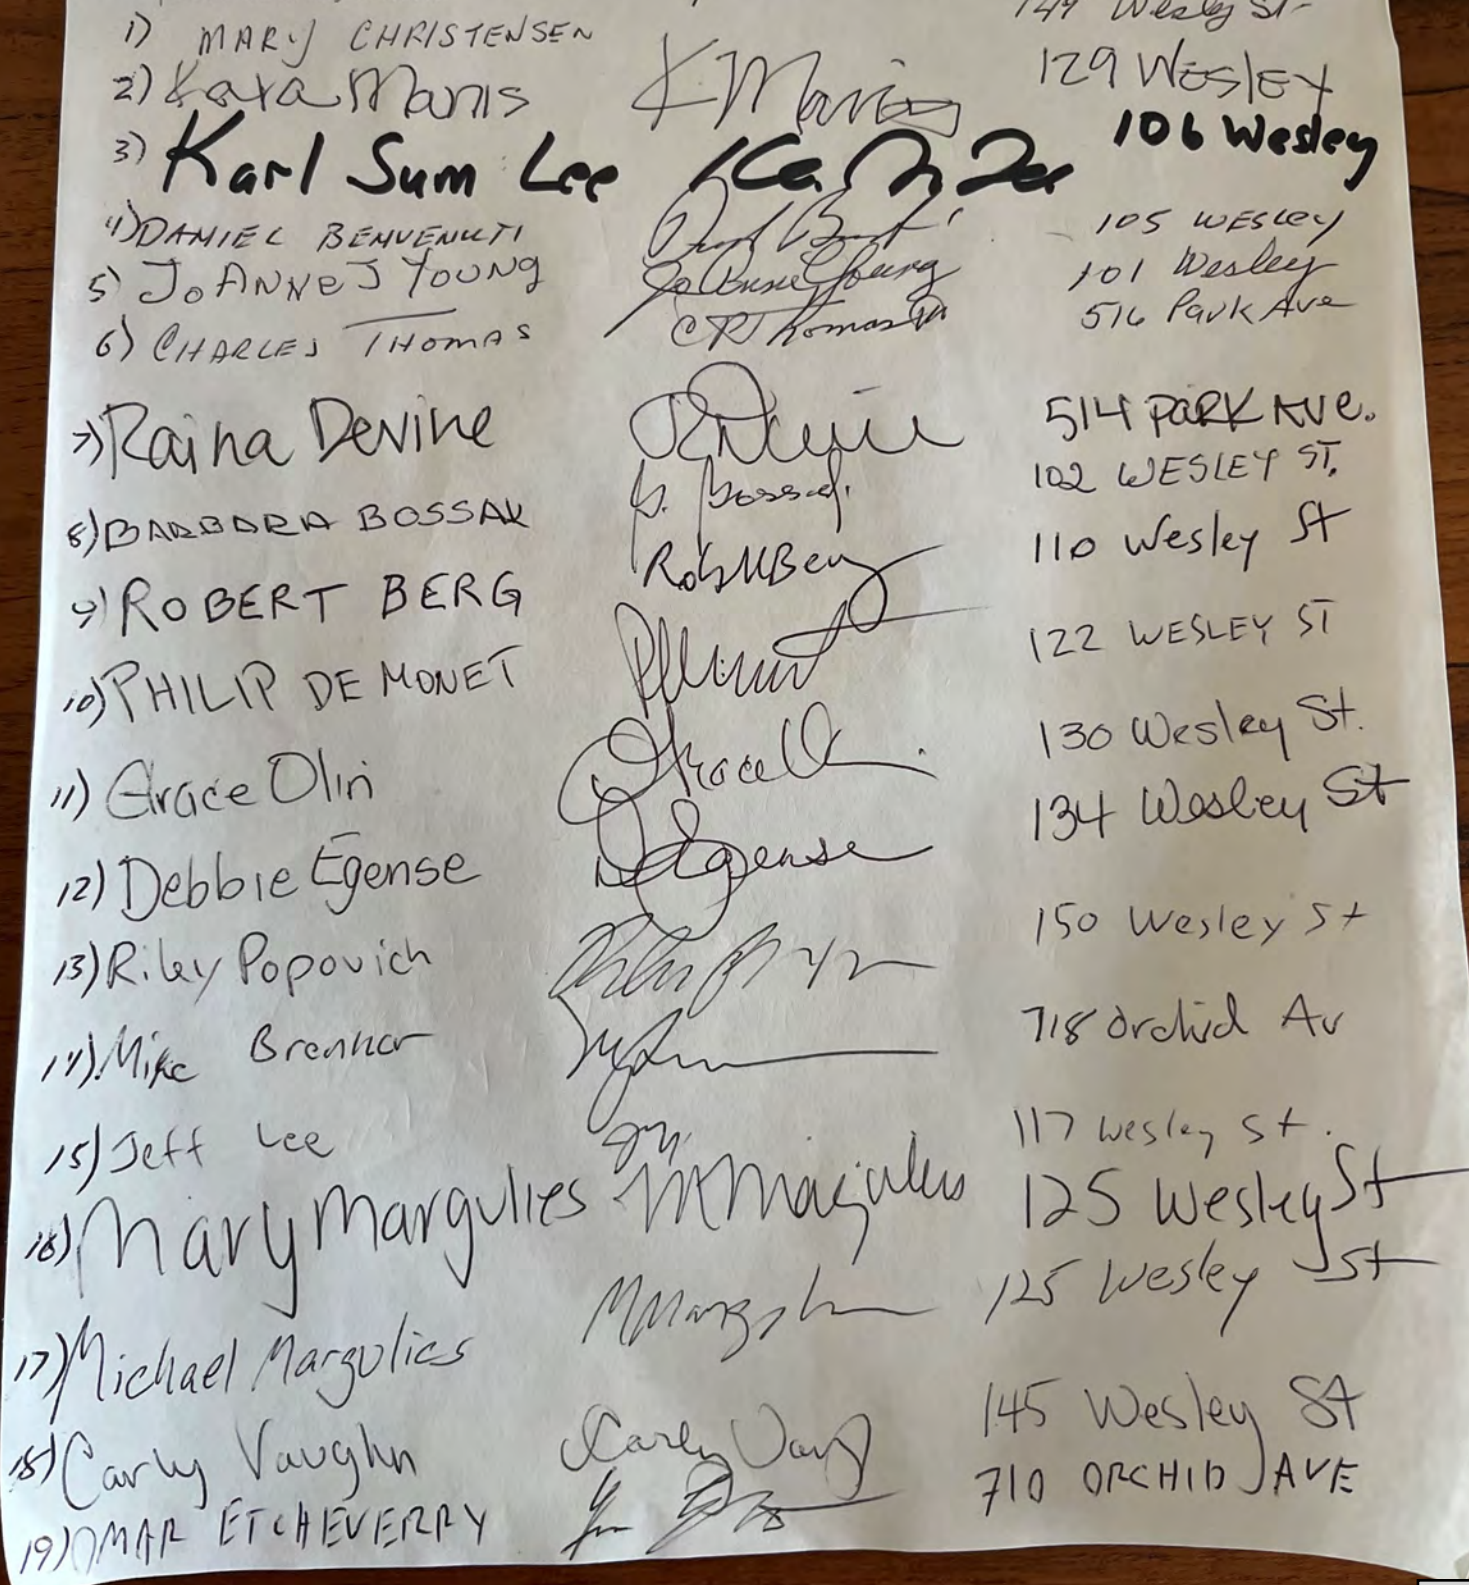 1) MARY CHRISTENSEN 149 Wesley St
2) Kara Manis K Manis 129 WESLEY
3) Karl Sum Lee 106 Wesley
4) DANIEL BENVENUTI 105 WESLEY
5) JoANNE J YOUNG Jo Anne J Young 101 Wesley
6) CHARLES THOMAS CR Thomas 516 Park Ave
7) Raina Devine R Devine 514 PARK AVE.
8) BARBARA BOSSAK B. Bossak 102 WESLEY ST.
9) ROBERT BERG Rob M Berg 110 Wesley St
10) PHILIP DE MONET 122 WESLEY ST
11) Grace Olin 130 Wesley St.
12) Debbie Egense D Egense 134 Wesley St
13) Riley Popovich 150 Wesley St
14) Mike Brennar 718 Orchid Av
15) Jeff Lee 117 Wesley St.
16) Mary Margulies M Margulies 125 Wesley St
17) Michael Margulies 125 Wesley St
18) Carly Vaughn Carly Vaug 145 Wesley St
19) OMAR ETCHEVERRY 710 ORCHID AVE